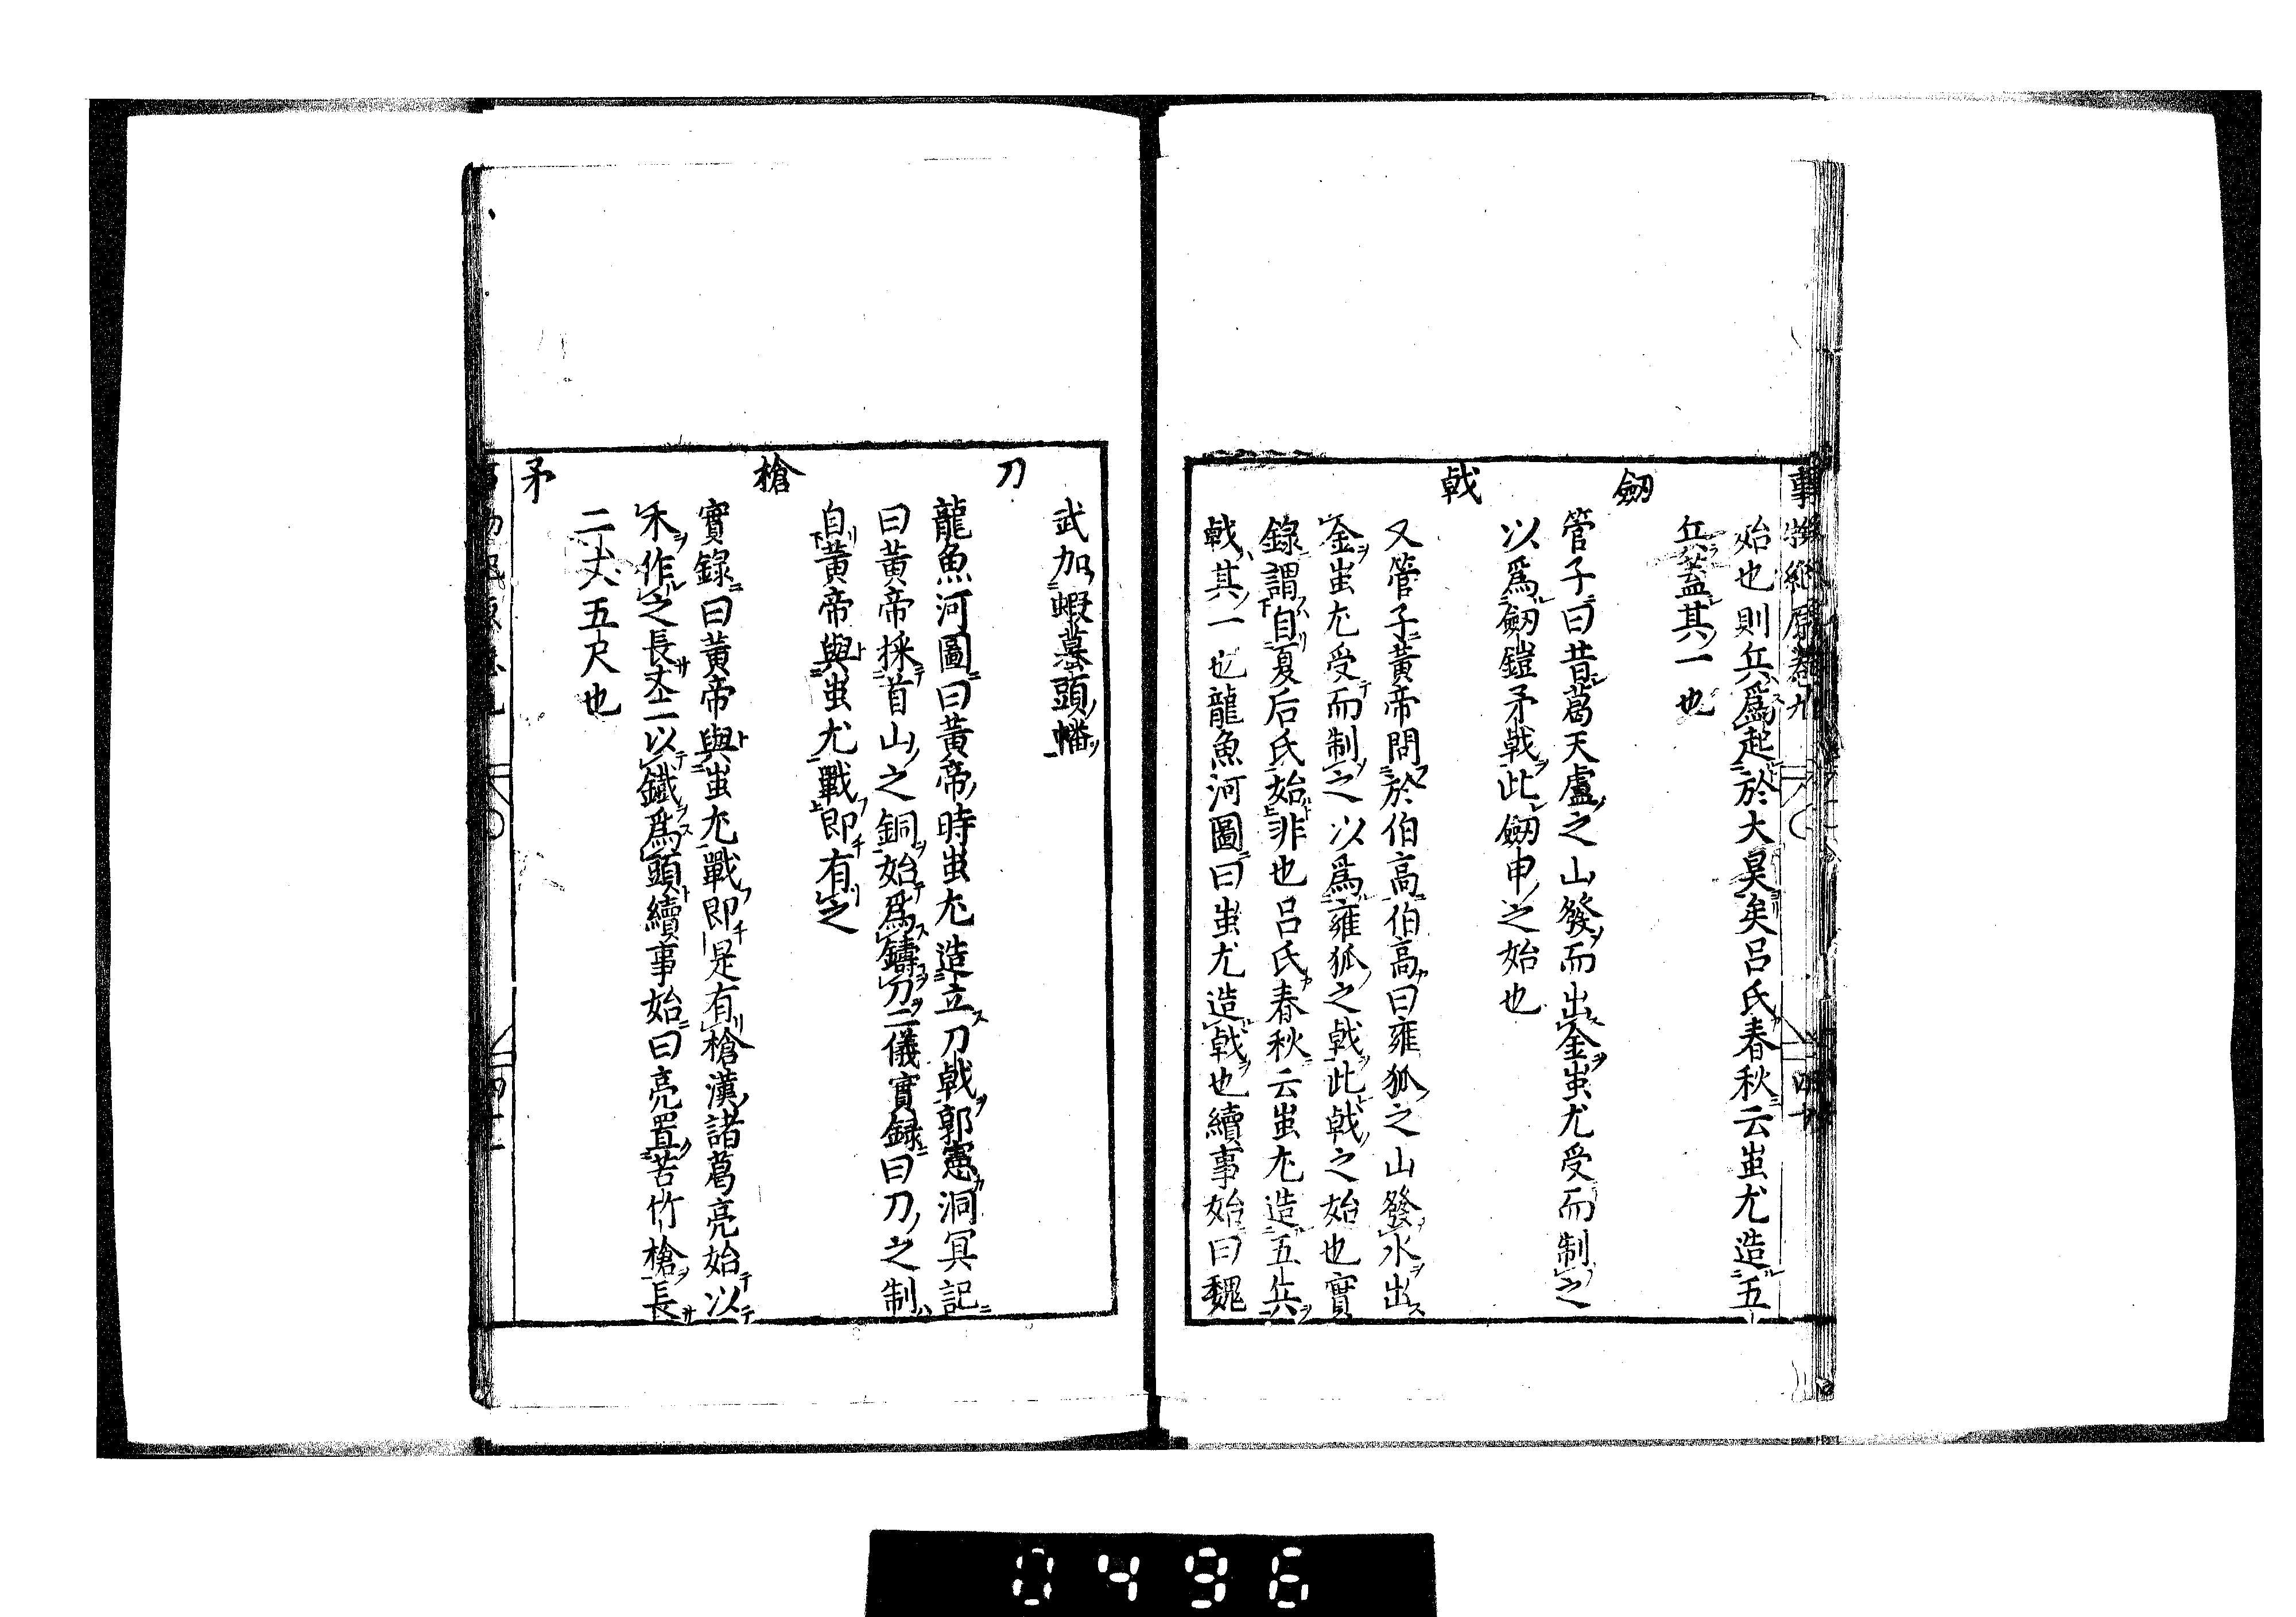 事物紀原卷九 四十
始也則兵爲起於大昊矣呂氏春秋云蚩尤造五
兵蓋其一也
劔
管子曰昔葛天盧之山發而出金蚩尤受而制之
以爲劔鎧矛戟此劔申之始也
戟
又管子黃帝問於伯高伯高曰雍狐之山發水出
金蚩尤受而制之以爲雍狐之戟此戟之始也實
錄謂自夏后氏始非也呂氏春秋云蚩尤造五兵
戟其一也龍魚河圖曰蚩尤造戟也續事始曰魏
武加蝦蟇頭幡
刀
龍魚河圖曰黃帝時蚩尤造立刀戟郭憲洞冥記
曰黃帝採首山之銅始爲鑄刀二儀實録曰刀之制
自黃帝與蚩尤戰即有之
槍
實錄曰黃帝與蚩尤戰即是有槍漢諸葛亮始以
木作之長丈二以鐵爲頭續事始曰亮置苦竹槍長
二丈五尺也
矛